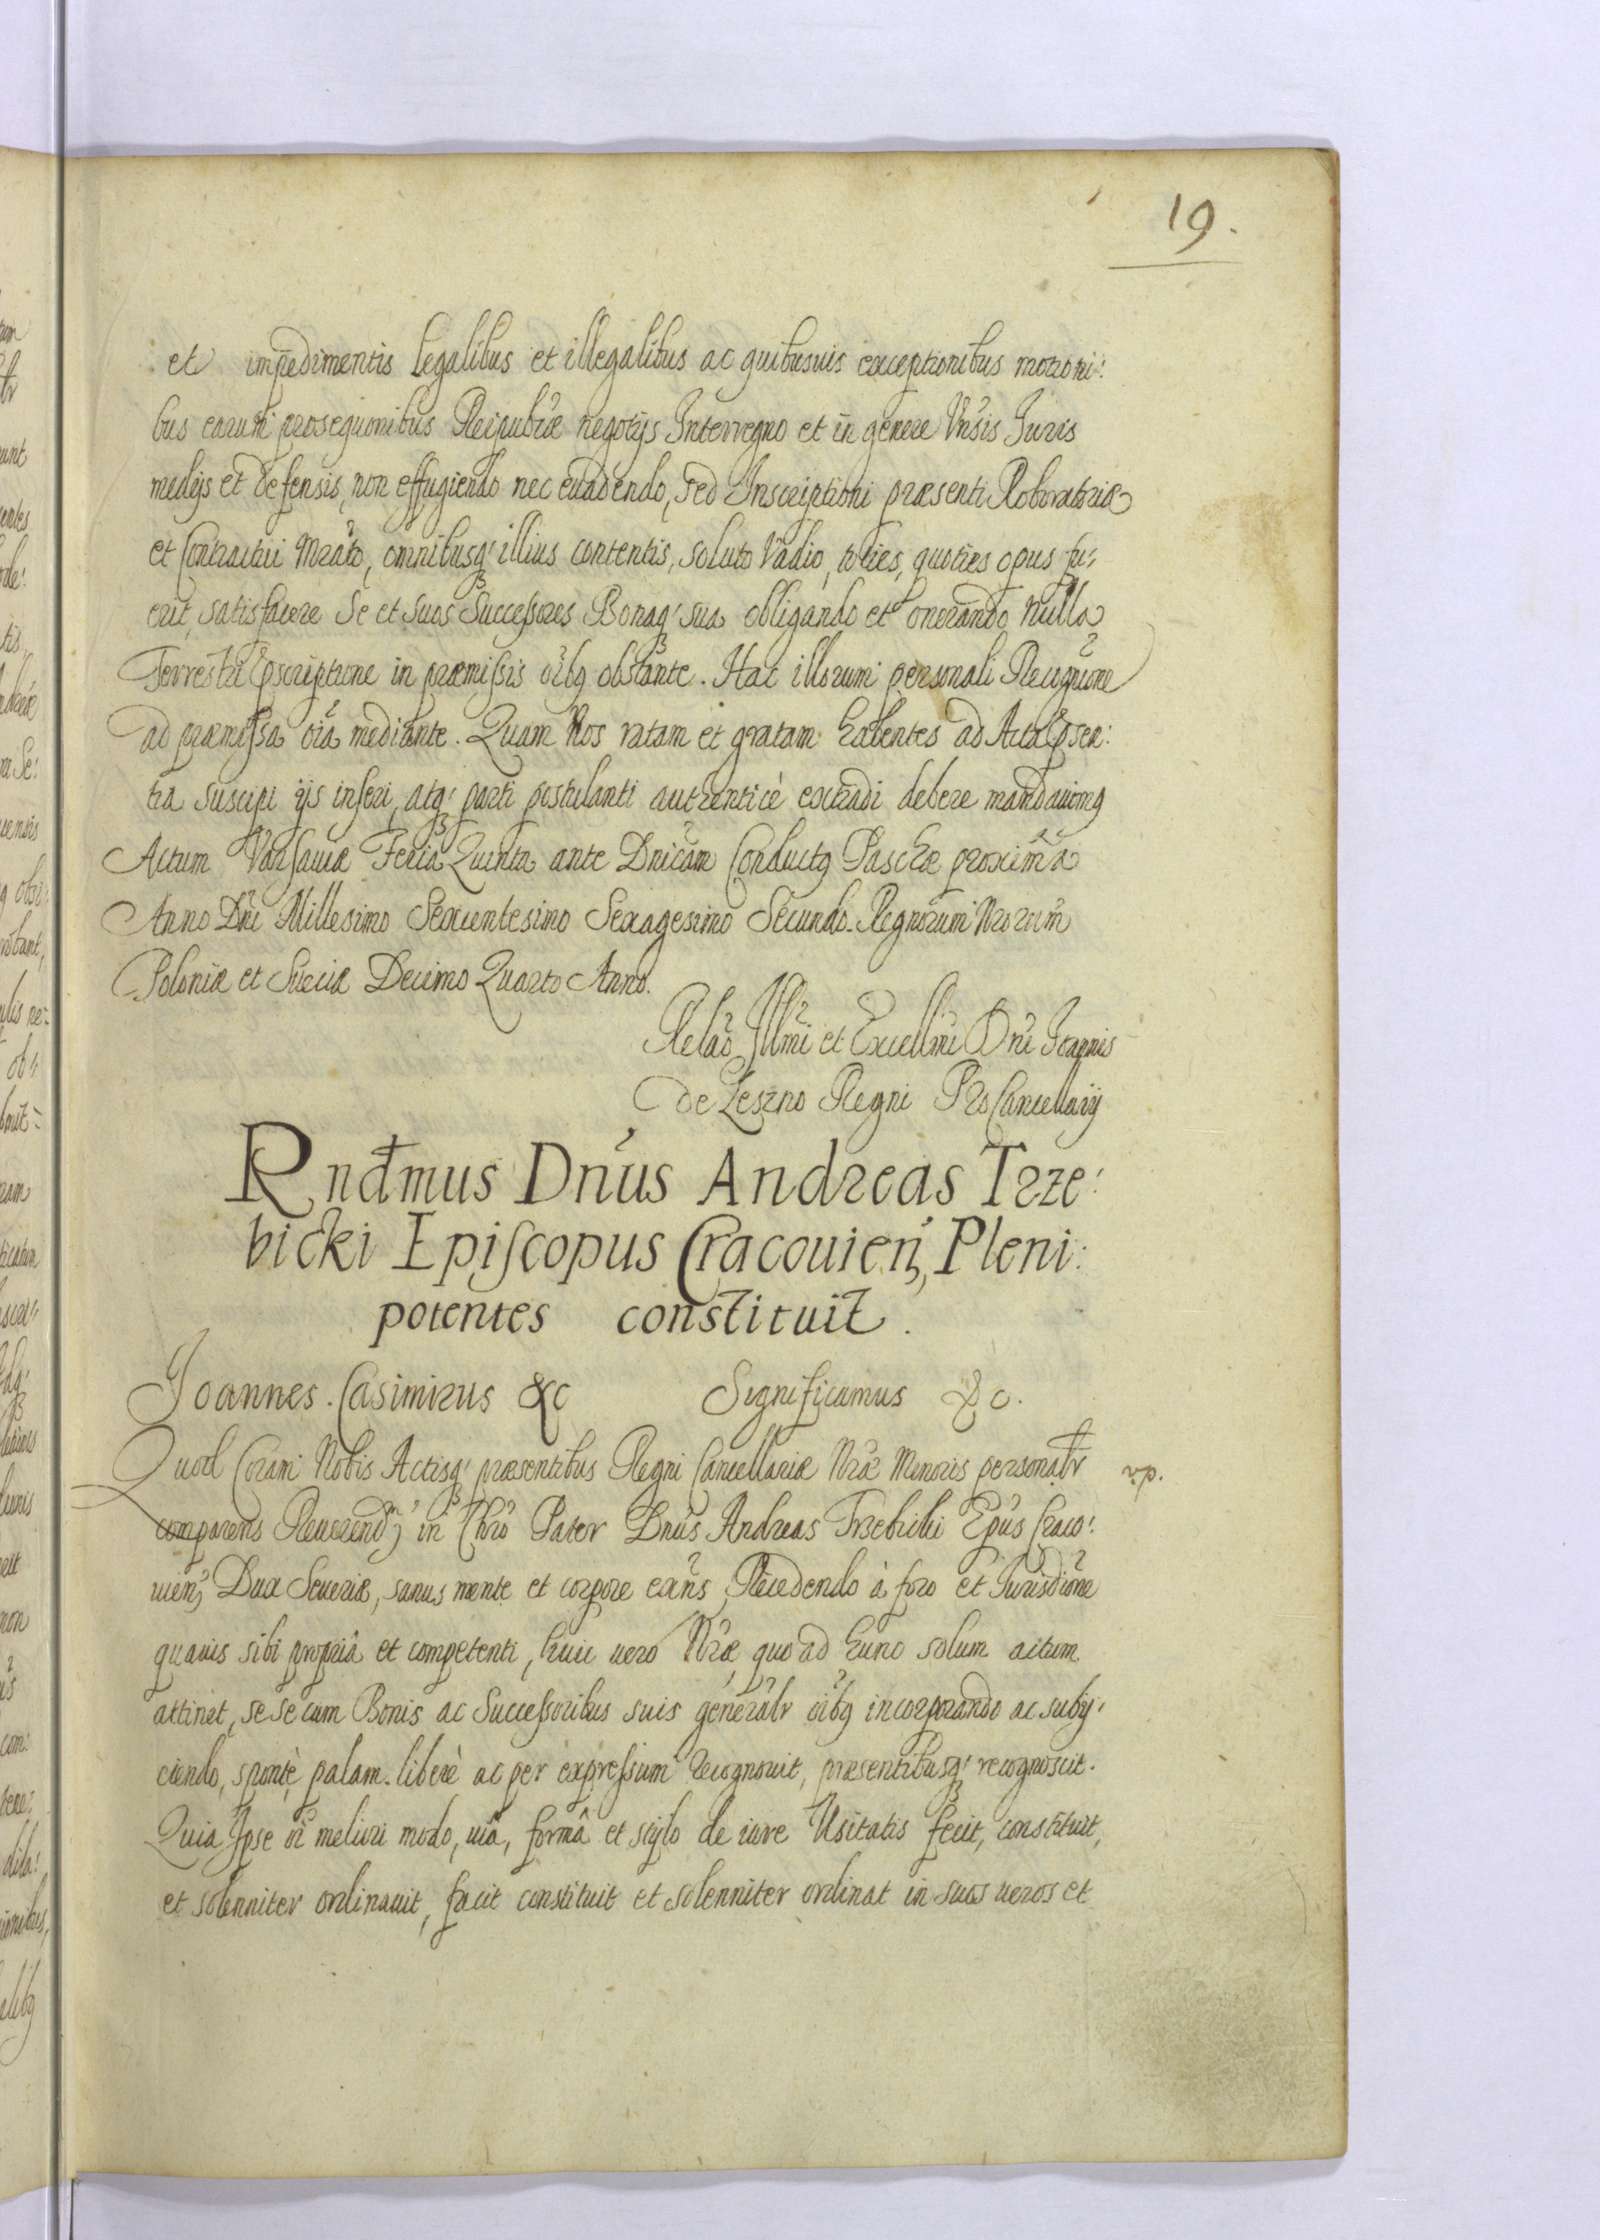 19.
et impedimentis legalibus et illegalibus ac quibusuis exceptionibus motioni:
bus earum prosequonibus Reipublcæ negotijs Interregno et in genere Vnsis Iuris
medijs et defensis, non effugiendo nec euadendo, sed Inscriptioni præsenti Roboratoriæ
et Contractui Mrato, omnibusq́ illius contentis, soluto Vadio, toties, quoties opus fu:
erit, satisfacere Se et Suos Successores Bonaq́ sua obligando et onerando Nulla
Terrestri Pscriptione in præmissis oibg obstante. Hac illorum personali Recognione
ad præmissa oia mediante. Quam Nos ratam et gratam habentes ad Acta Psen:
tia suscipi ijs inseri, atq́ parti postulanti authenticè extradi debere mandauimg
Actum Varsauiæ Feria Quinta ante Dnicam Conductg Paschæ proxima
Anno Dni Millesimo Sexcentesimo Sexagesimo Secundo. Regnorum Nrorum
Poloniæ et Sueciæ Decimo Quarto Anno.
Relao Illmi et Excellmi Dni Joannis
de Leszno Regni ProCancellarij
Rndmus Dnus Andreas Trze:
bicki Episcopus Cracouien, Pleni:
potentes constituit.
Joannes Casimirus &c Significamus &c.
Quod Coram Nobis Actisq́ præsentibus Regni Cancellariæ Nræ Minoris personalr
comparens Reuerendg in Chro Pater Dnus Andreas Trzebicki Epus Craco:
uien, Dux Seueriæ, sanus mente et corpore exns, Recedendo à foro et Iurisdione
quauis sibi propriâ et competenti, huic vero Nræ, quo ad hunc solum actum
attinet, se se cum Bonis ac Successoribus suis generalr oibg incorporando ac subij:
ciendo, spontè, palam. liberè ac per expressum recognouit, præsentibusq́ recognoscit.
Quia Ipse oi meliori modo, uiâ, formâ et stylo de iure Vsitatis fecit, constituit,
et solenniter ordinauit, facit constituit et solenniter ordinat in suos ueros et